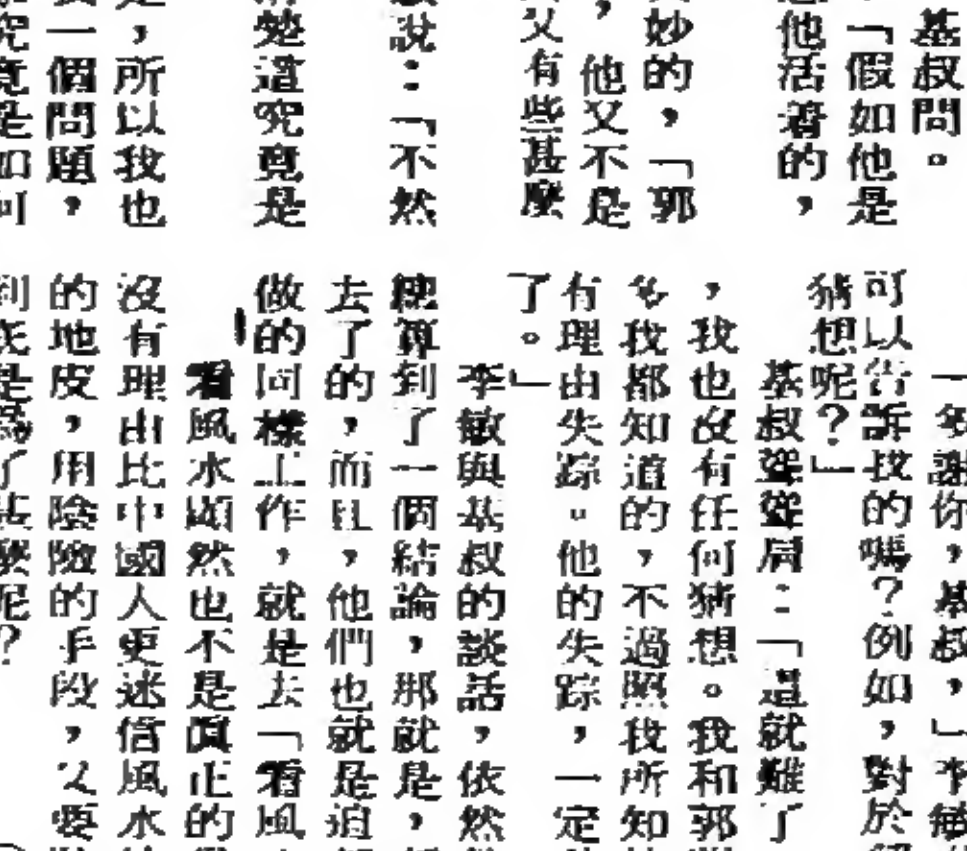 基叔問。
「假如他是
他活着的,
妙的,「郭
,他又不是
又有些甚麼
說:「不然
楚這究竟是
,所以我也
一個問題,
究竟是如何
「多謝你,基叔,」李敏
可以告訴我的嗎?例如,對於
猜想呢?」
基叔聳聳肩:「這就難了
,我也沒有任何猜想。我和郭
多我都知道的,不過照我所知
有理由失踪。他的失踪,一定
了。」
李敏與基叔的談話,依然
總算到了一個結論,那就是,
去了的,而且,他們也就是追
做的同樣工作,就是去「看風
看風水顯然也不是眞正的
沒有理由比中國人更迷信風水
的地皮,用陰險的手段,又要
到底是爲了甚麼呢?